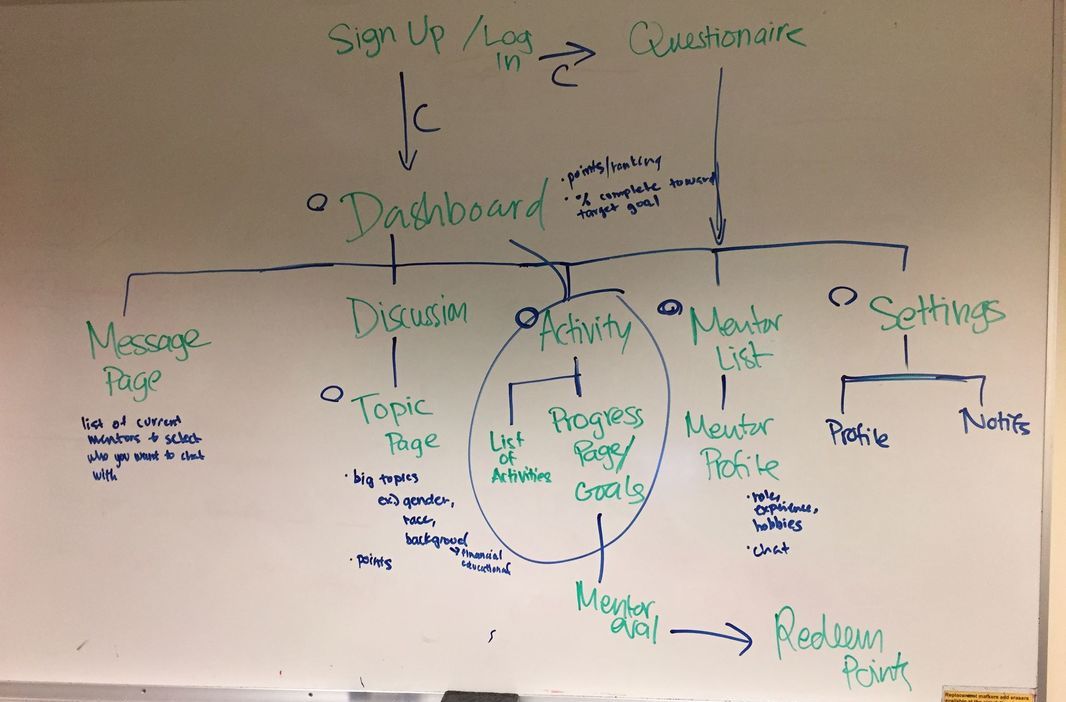 Sign Up / Log
In
C
Questionaire
C
Dashboard
• points/ranking
• % complete toward
target goal
Message
Page
list of current
mentors to select
who you want to chat
with
Discussion
Topic
Page
• big topics
ex.) gender,
race,
backgroud
→ financial
educational
• points
Activity
List
of
Activities
Progress
Page/
Goals
Mentor
eval
Redeem
Points
Mentor
List
Mentor
Profile
• role,
experience,
hobbies
• chat
Settings
Profile
Notifs
Replacement markers and erasers